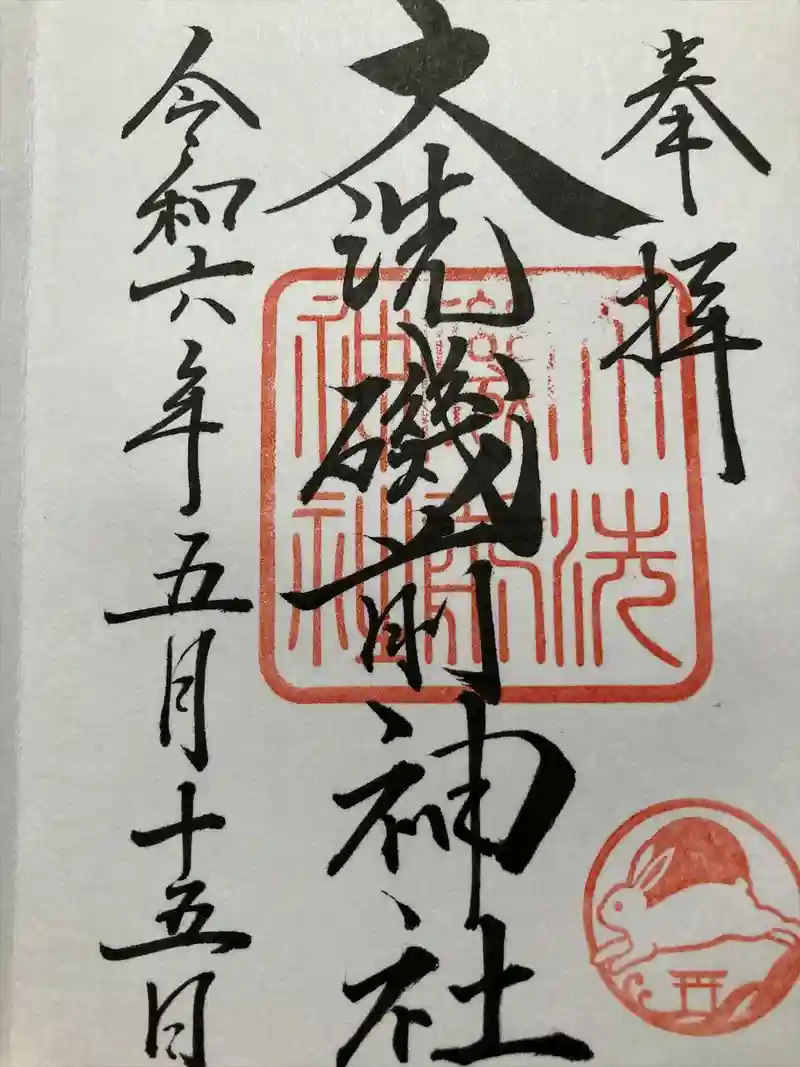 奉拝
大洗磯前神社
令和六年五月十五日
大洗
磯前
神社